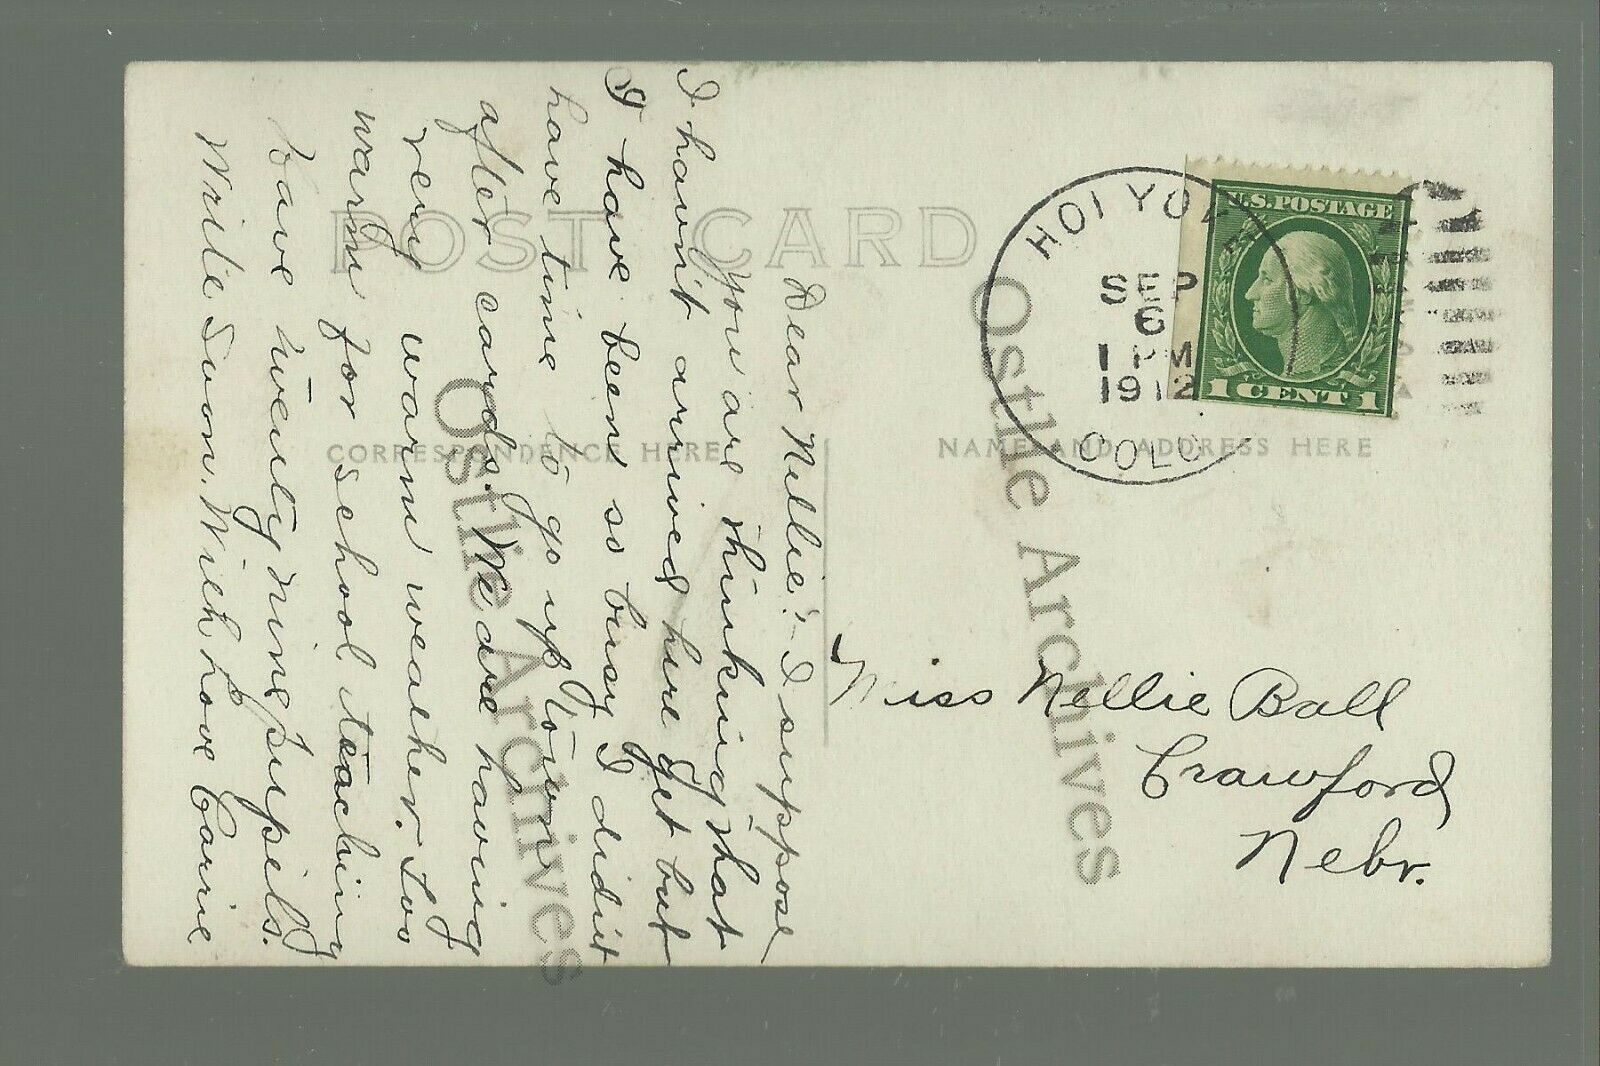 POST CARD
CORRESPONDENCE HERE
NAME AND ADDRESS HERE
HOLYOK
SEP
6
1 PM
1912
COLO
U.S. POSTAGE
1 CENT 1
Dear Nellie:- I suppose
you are thinking that
I havn't arrived here yet but
I have been so busy I didn't
have time to go up town
after cards. We are having
very warm weather. too
warm for school teaching
Have twenty nine pupils.
Write Soon. With love Carrie
Miss Nellie Ball
Crawford
Nebr.
Ostlie Archives
Ostlie Archives